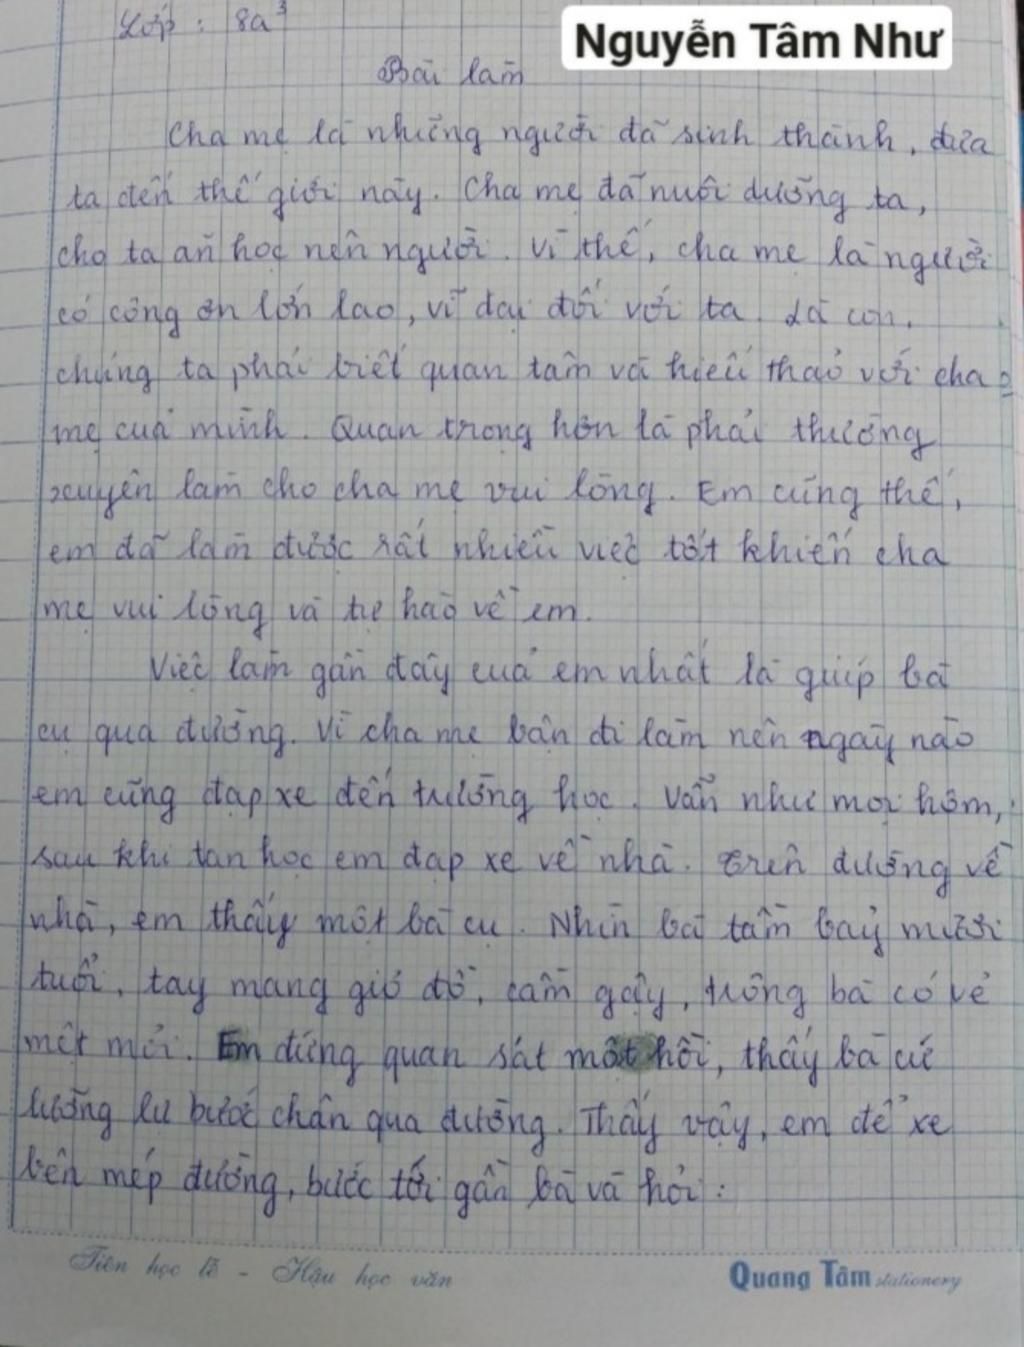 Lớp : 8a³
Nguyễn Tâm Như
Bài làm
Cha mẹ là những người đã sinh thành, đưa
ta đến thế giới này. Cha mẹ đã nuôi dưỡng ta,
cho ta ăn học nên người. Vì thế, cha mẹ là người
có công ơn lớn lao, vĩ đại đối với ta. Là con,
chúng ta phải biết quan tâm và hiếu thảo với cha
mẹ của mình. Quan trọng hơn là phải thường
xuyên làm cho cha mẹ vui lòng. Em cũng thế,
em đã làm được rất nhiều việc tốt khiến cha
mẹ vui lòng và tự hào về em.
Việc làm gần đây của em nhất là giúp bà
cụ qua đường. Vì cha mẹ bận đi làm nên ngày nào
em cũng đạp xe đến trường học. Vẫn như mọi hôm,
sau khi tan học em đạp xe về nhà. Trên đường về
nhà, em thấy một bà cụ. Nhìn bà tầm bảy mươi
tuổi, tay mang giỏ đồ, cầm gậy, trông bà có vẻ
mệt mỏi. Em đứng quan sát một hồi, thấy bà cứ
lưỡng lự bước chân qua đường. Thấy vậy, em để xe
bên mép đường, bước tới gần bà và hỏi :
Tiên học lễ - Hậu học văn
Quang Tâm stationery